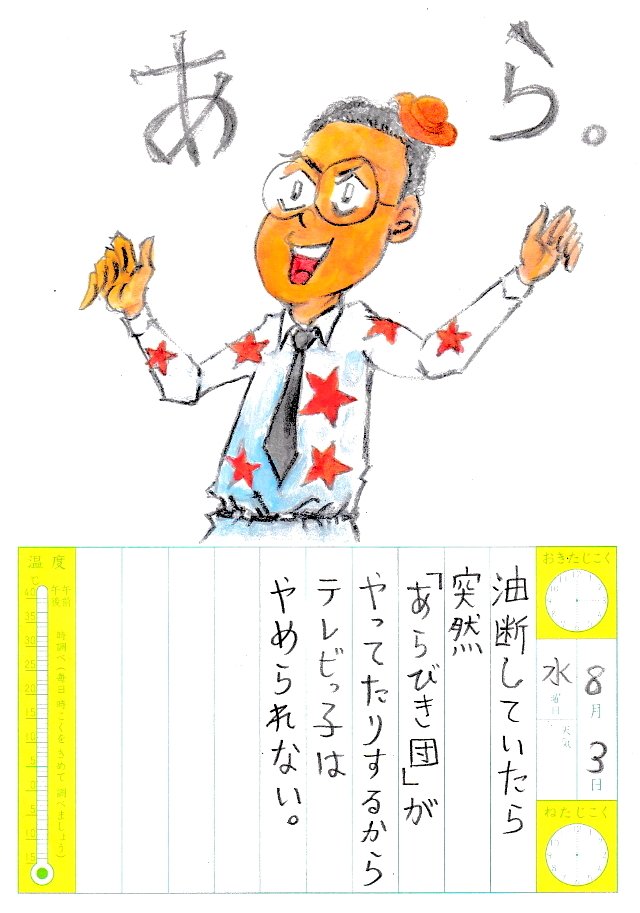 あら。
おきたじこく
8月3日
水曜日
天気
ねたじこく
油断していたら
突然
「あらびき団」が
やってたりするから
テレビっ子は
やめられない。
温度
℃
午前
午後
時調べ(毎日時こくをきめて調べましょう)
40
35
30
25
20
15
10
5
0
5
10
15